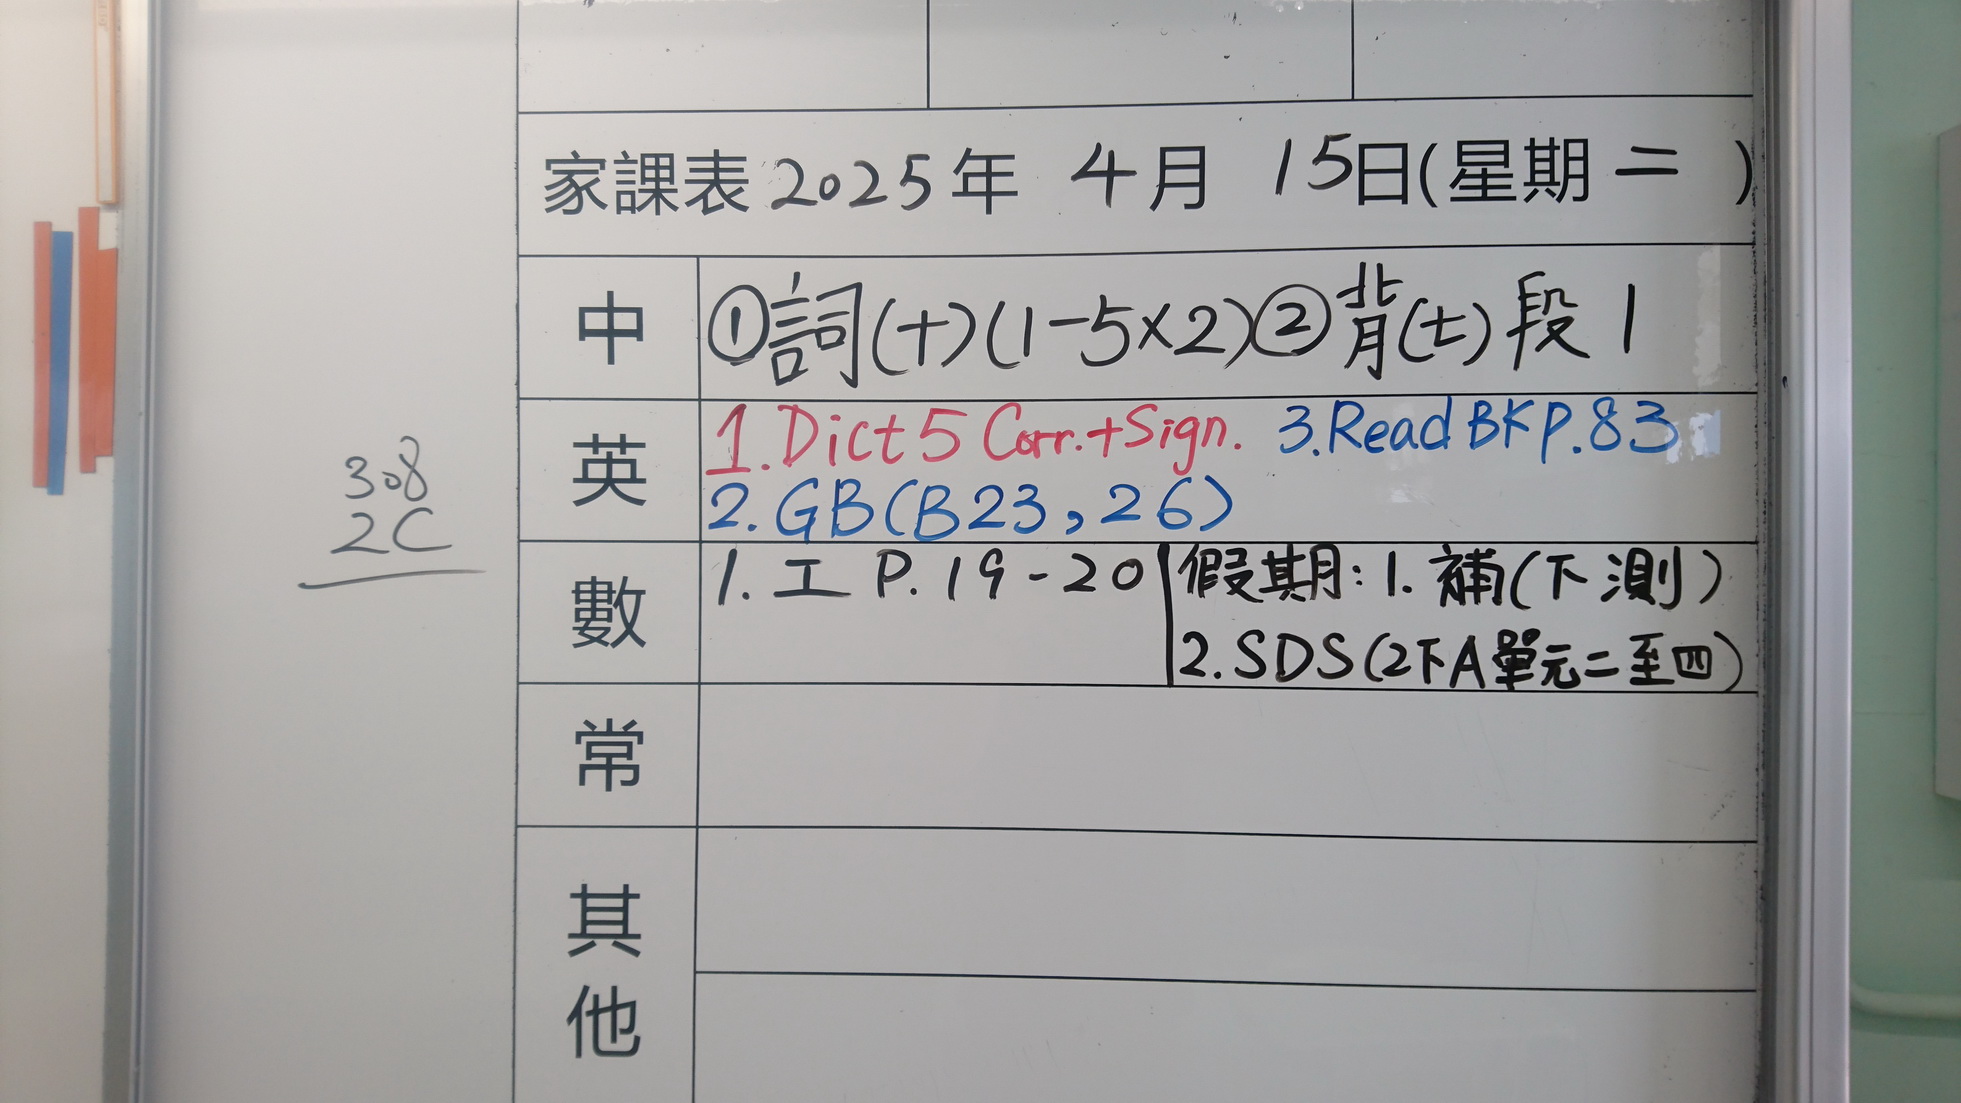 家課表 2025年 4月 15日(星期二 )
中 ①詞(十)(1-5×2)②背(七)段1
英 1.Dict 5 Corr.+Sign. 3.Read BK P.83
2. GB(B23,26)
數 1. 工 P.19-20 假期: 1. 補(下測)
2. SDS(2下A單元二至四)
常
其他
308
2C